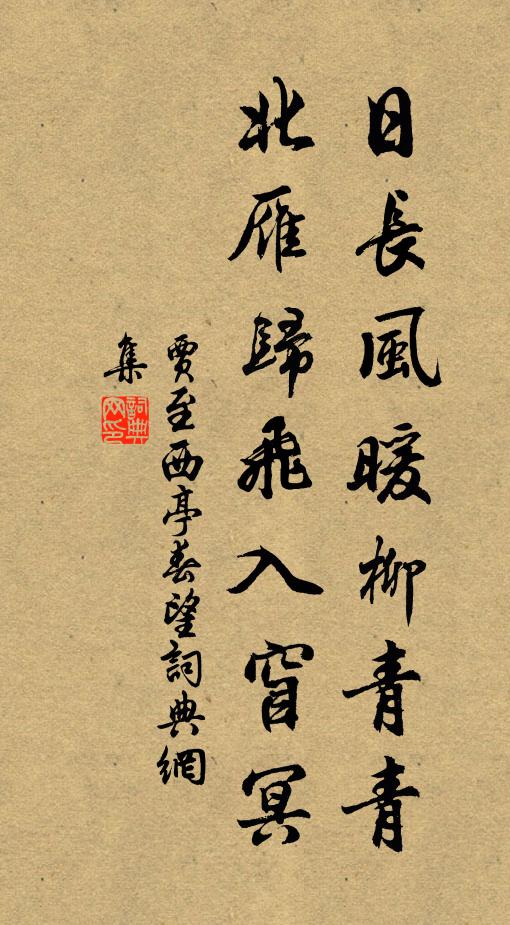 日長風暖柳青青
北雁歸飛入窅冥
賈至西亭春望詞典網
集
詞典網印